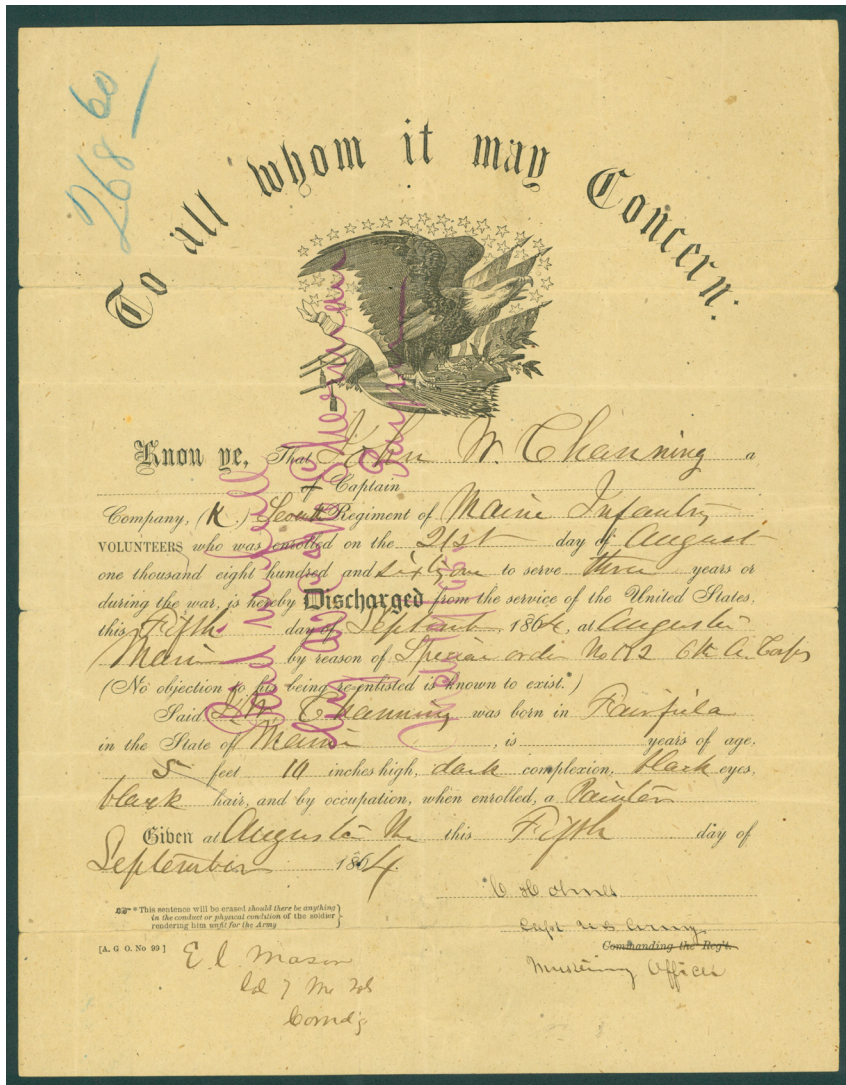 268 60
To all whom it may Concern:
Know ye, That John W. Channing a
of Captain
Company, (K.) Seventh Regiment of Maine Infantry
VOLUNTEERS who was enrolled on the 21st day of August
one thousand eight hundred and sixty one to serve three years or
during the war, is hereby Discharged from the service of the United States,
this Fifth day of September, 1864, at Augusta
Maine by reason of Special order No 6th A. Corps
(No objection to his being re-enlisted is known to exist.*)
Said J. W. Channing was born in Fairfield
in the State of Maine, is years of age,
5 feet 10 inches high, dark complexion, black eyes,
black hair, and by occupation, when enrolled, a Painter
Given at Augusta Me this Fifth day of
September 1864.
C Holmes
Capt U.S. Army,
Commanding the Reg't.
Mustering Officer
* This sentence will be erased should there be anything
in the conduct or physical condition of the soldier
rendering him unfit for the Army
[A. G O. No 99]
E. C. Mason
Col 7 Me Vols
Comd'g
Paid in full